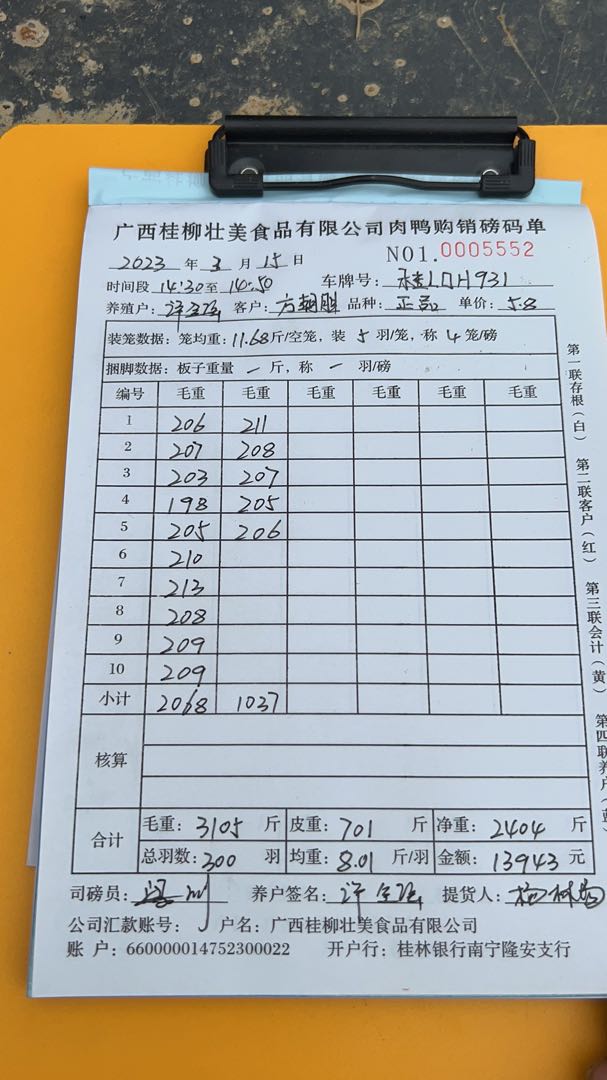 广西桂柳壮美食品有限公司肉鸭购销磅码单
2023 年 3 月 15 日 NO1.0005552
时间段 14:30 至 14:50 车牌号: H931
养殖户: 客户: 方朝胜 品种: 正品 单价: 5.8
装笼数据: 笼均重: 11.68 斤/空笼, 装 5 羽/笼, 称 4 笼/磅
捆脚数据: 板子重量 一 斤, 称 一 羽/磅
编号 毛重 毛重 毛重 毛重 毛重 毛重
1 206 211
2 207 208
3 203 207
4 198 205
5 205 206
6 210
7 213
8 208
9 209
10 209
小计 2068 1037
核算
合计 毛重: 3105 斤 皮重: 701 斤 净重: 2404 斤
总羽数: 300 羽 均重: 8.01 斤/羽 金额: 13943 元
司磅员: 养户签名: 提货人: 杨林
公司汇款账号: 户名: 广西桂柳壮美食品有限公司
账 户: 660000014752300022 开户行: 桂林银行南宁隆安支行
第一联存根(白) 第二联客户(红) 第三联会计(黄) 第四联养户(蓝)